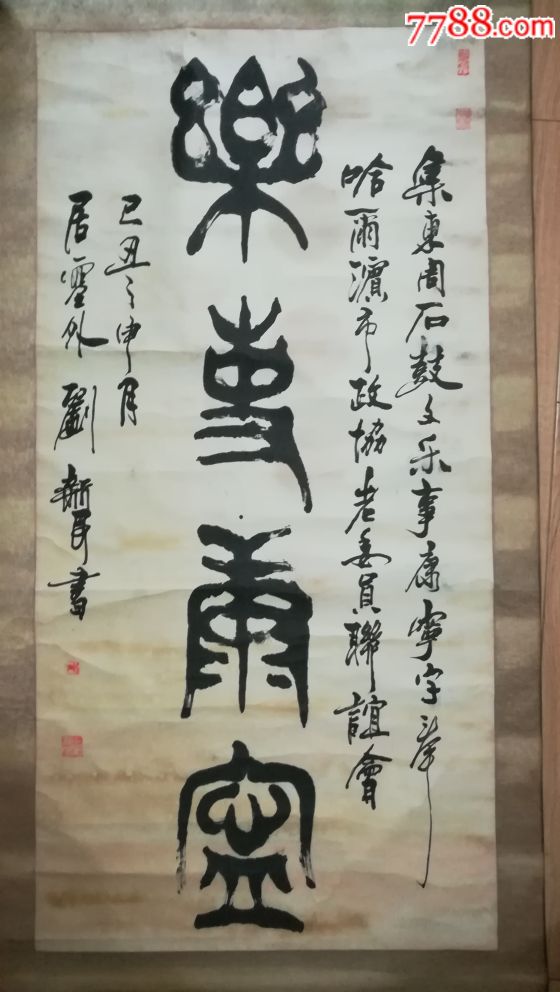 7788.com
集東周石鼓文乐事康寧字奉
哈爾濱市政協老委員聯誼會
樂事康寧
己丑之申月
居塞外劉新民書